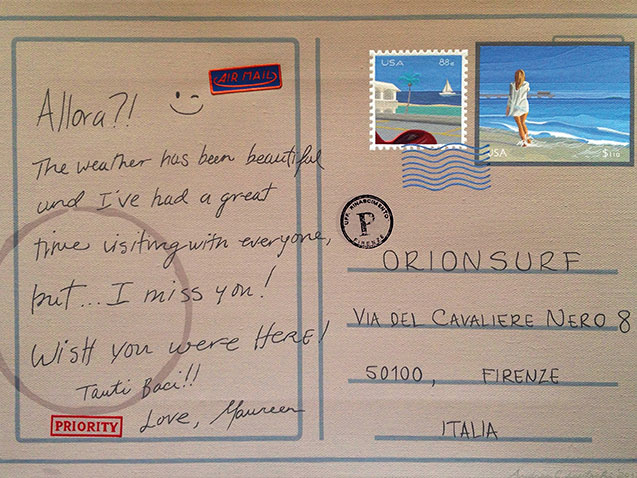 AIR MAIL
Allora?!
The weather has been beautiful
and I've had a great
time visiting with everyone,
but... I miss you!
Wish you were Here!
Tanti Baci!!
Love, Maureen
PRIORITY
USA 88¢
USA
RINASCIMENTO
P
FIRENZE
ORIONSURF
VIA DEL CAVALIERE NERO 8
50100, FIRENZE
ITALIA